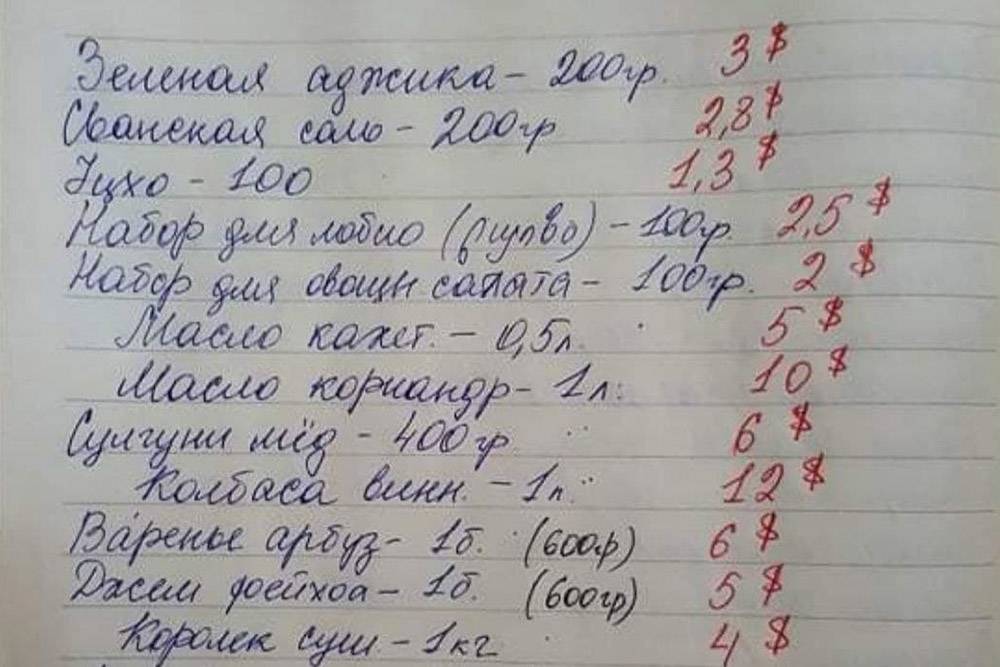 Зеленая аджика - 200гр. 3$
Сванская соль - 200гр 2,8$
Уцхо - 100 1,3$
Набор для лобио ( ) - 100гр. 2,5$
Набор для овощн салата - 100гр. 2$
Масло кахет. - 0,5л. 5$
Масло кориандр - 1л. 10$
Сулгуни мёд - 400гр. 6$
Колбаса винн. - 1п. 12$
Варенье арбуз - 1б. (600гр) 6$
Джем фейхоа - 1б. (600гр) 5$
Королек суш - 1кг 4$